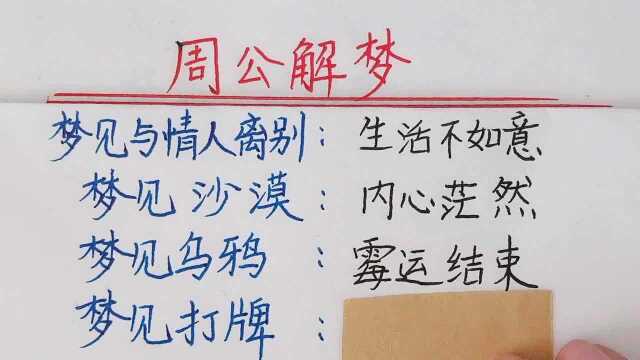 周公解梦
梦见与情人离别：生活不如意
梦见沙漠：内心茫然
梦见乌鸦：霉运结束
梦见打牌：